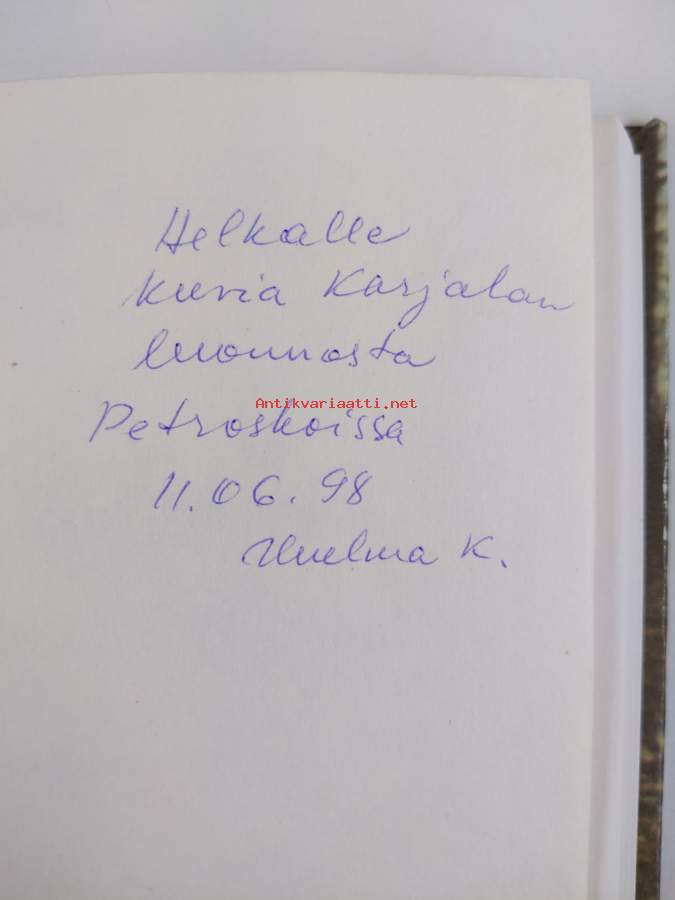 Helkalle
kuvia Karjalan
luonnosta
Antikvariaatti.net
Petroskoissa
11.06.98
K.